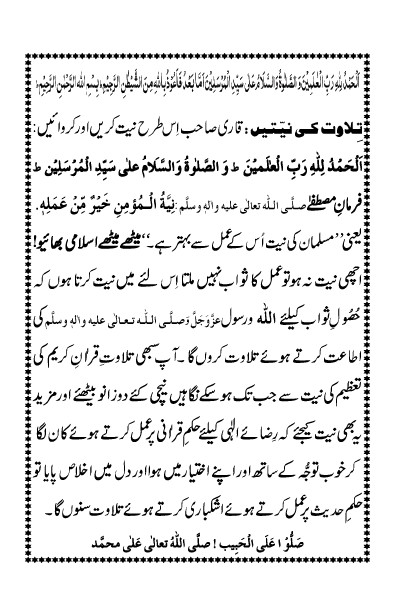 اَلْحَمْدُ لِلّٰهِ رَبِّ الْعٰلَمِیْنَ وَالصَّلٰوةُ وَالسَّلَامُ عَلٰی سَیِّدِ الْمُرْسَلِیْنَ اَمَّا بَعْدُ فَاَعُوْذُ بِاللّٰهِ مِنَ الشَّیْطٰنِ الرَّجِیْمِ ؕ بِسْمِ اللهِ الرَّحْمٰنِ الرَّحِیْمِ ؕ
تِلاوت کی نیّتیں : قاری صاحب اِس طرح نیت کریں اور کروائیں:
اَلْحَمْدُ لِلّٰهِ رَبِّ الْعٰلَمِیْنَ ط وَ الصَّلٰوةُ وَالسَّلَامُ عَلٰی سَیِّدِ الْمُرْسَلِیْن ط
فرمانِ مصطفٰے صلَّی اللہ تعالٰی علیہ واٰلہٖ وسلَّم: نِیَّةُ الْمُؤْمِنِ خَیْرٌ مِّنْ عَمَلِهٖ.
یعنی ’’مسلمان کی نیت اُس کے عمل سے بہتر ہے۔‘‘ میٹھے میٹھے اسلامی بھائیو!
اچھی نیت نہ ہو تو عمل کا ثواب نہیں ملتا اِس لئے میں نیت کرتا ہوں کہ
حُصُولِ ثواب کیلئے اللہ و رسول عَزَّوَجَلَّ وَ صلَّی اللہ تعالٰی علیہ واٰلہٖ وسلَّم کی
اطاعت کرتے ہوئے تلاوت کروں گا۔ آپ سبھی تلاوتِ قرانِ کریم کی
تعظیم کی نیت سے جب تک ہو سکے نگاہیں نیچی کئے دو زانو بیٹھئے اور مزید
یہ بھی نیت کیجئے کہ رِضائے الٰہی کیلئے حکمِ قرانی پر عمل کرتے ہوئے کان لگا
کر خوب توجُّہ کے ساتھ اور اپنے اختیار میں ہوا اور دل میں اخلاص پایا تو
حکمِ حدیث پر عمل کرتے ہوئے اشکباری کرتے ہوئے تلاوت سنوں گا۔
صَلُّوْا عَلَی الْحَبِیب ! صلَّی اللهُ تعالٰی عَلٰی محمَّد